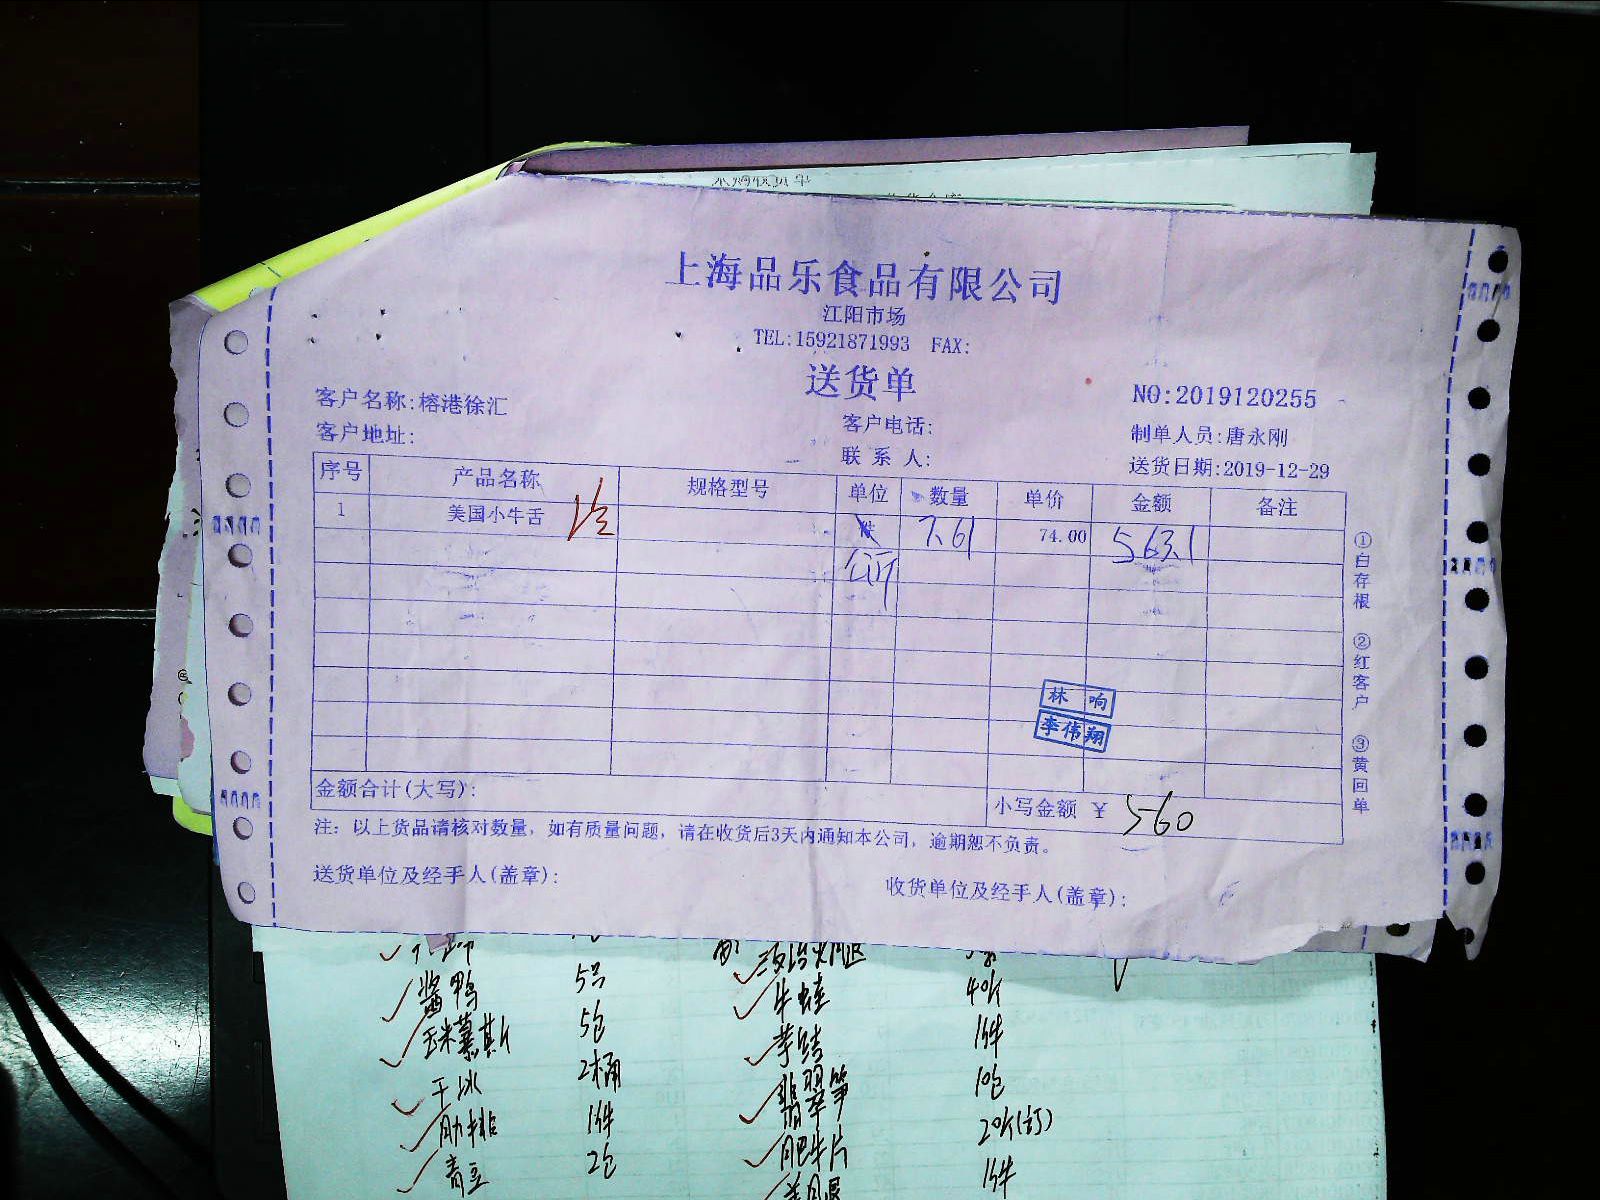 上海品乐食品有限公司
江阳市场
TEL:15921871993 FAX:
送货单
NO:2019120255
客户名称:榕港徐汇
客户电话:
制单人员:唐永刚
客户地址:
联系人:
送货日期:2019-12-29
序号 产品名称 规格型号 单位 数量 单价 金额 备注
1 美国小牛舌 7.61 74.00 563.1
公斤
林响
李伟翔
金额合计(大写):
小写金额 ¥ 560
注：以上货品请核对数量，如有质量问题，请在收货后3天内通知本公司，逾期恕不负责。
送货单位及经手人(盖章):
收货单位及经手人(盖章):
①白存根 ②红客户 ③黄回单
酱鸭 5只 牛蛙 40只
玉米慕斯 5包 芋结 1件
干冰 2桶 翡翠笋 10包
肋排 1件 肥牛片
青豆 2包 1件